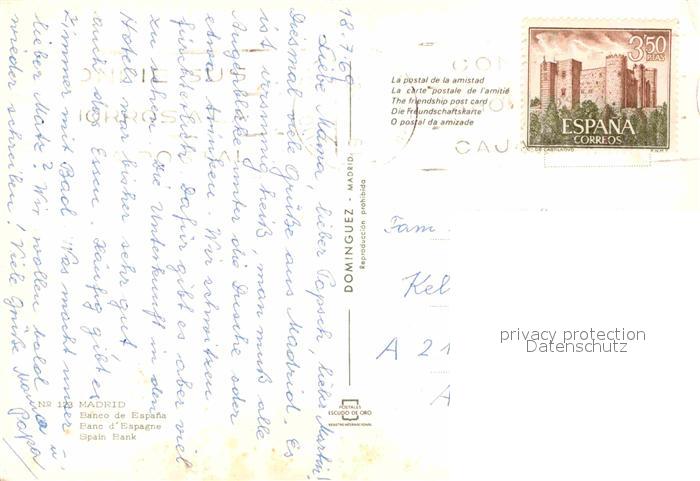 18.7.69
Liebe Mama, lieber Papsch, liebe Martin!
Diesmal viele Grüße aus Madrid. Es
ist irrsinnig heiß, man muß alle
Augenblicke unter die Dusche oder
etwas trinken. Wir schwitzen
fürchterlich. Dafür gibt es aber viel
zu sehen. Die Unterkunft in den
Hotels war bisher sehr gut,
auch das Essen. Häufig gibt es
Zimmer mit Bad. Was macht unser
lieber Matz? Wir wollen bald
wieder schreiben! Viele Grüße Mama u.
Papa
Nº 123 MADRID
Banco de España
Banc d'Espagne
Spain Bank
DOMINGUEZ - MADRID
Reproducción prohibida
POSTALES
ESCUDO DE ORO
REGISTRO INTERNACIONAL
La postal de la amistad
La carte postale de l'amitié
The friendship post card
Die Freundschaftskarte
O postal da amizade
3'50
PTAS
ESPAÑA
CORREOS
CON
CAJA
Fam.
Kel
A 21
A
privacy protection
Datenschutz